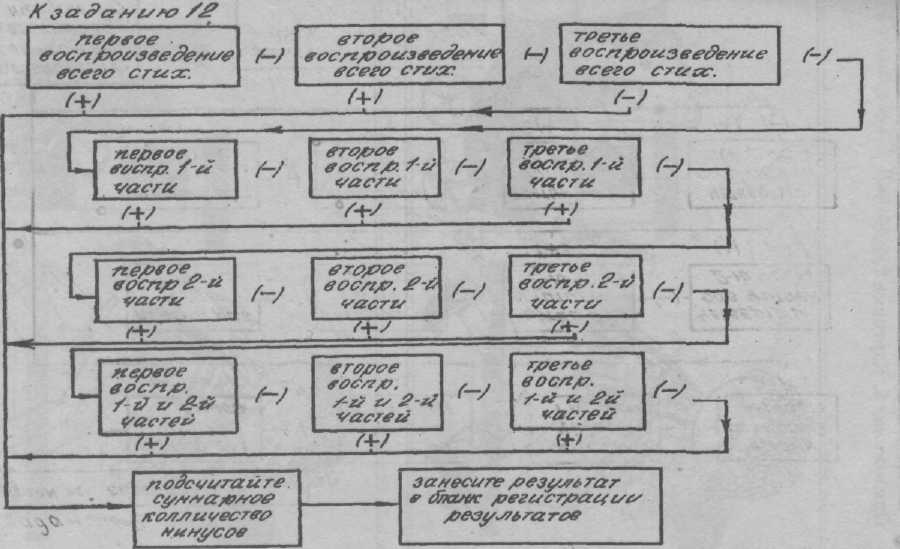 К заданию 12
первое
воспроизведение
всего стих.
(–)
второе
воспроизведение
всего стих.
(–)
третье
воспроизведение
всего стих.
(–)
(+)
(+)
(–)
первое
воспр. 1-й
части
(–)
второе
воспр. 1-й
части
(–)
третье
воспр. 1-й
части
(–)
(+)
(+)
(+)
первое
воспр 2-й
части
(–)
второе
воспр. 2-й
части
(–)
третье
воспр. 2-й
части
(–)
(+)
(+)
(+)
первое
воспр.
1-й и 2-й
частей
(–)
второе
воспр.
1-й и 2-й
частей
(–)
третье
воспр.
1-й и 2й
частей
(–)
(+)
(+)
(+)
подсчитайте
суммарное
колличество
минусов
занесите результат
в бланк регистрации
результатов